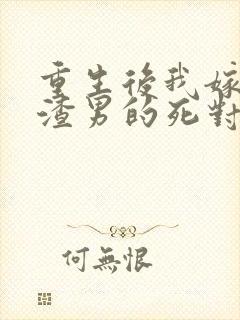 重生後我嫁
渣男的死對
何無恨